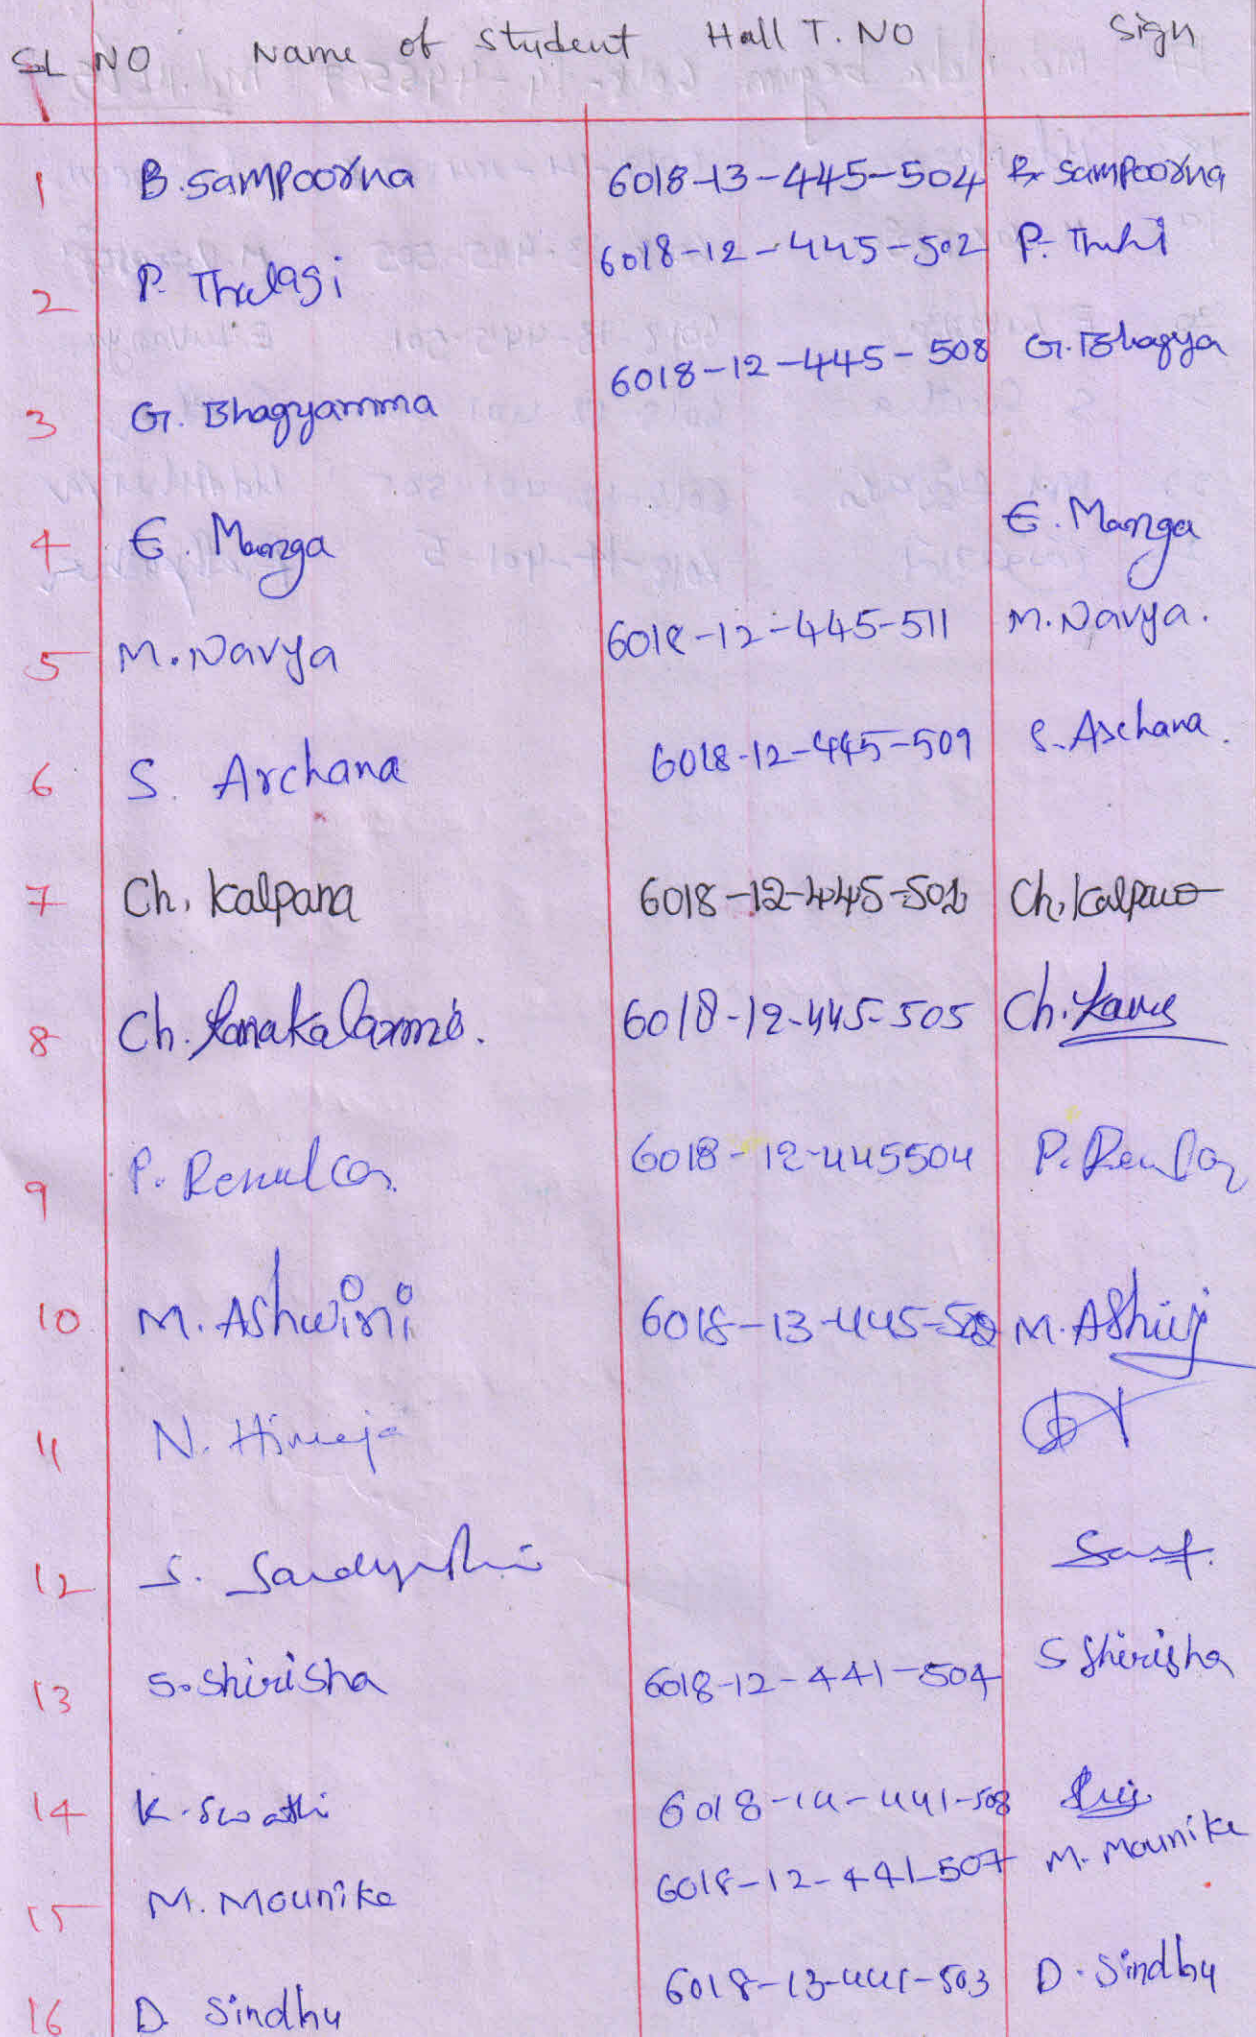 SL NO Name of Student Hall T. NO Sign
1 B. Sampoorna 6018-13-445-504 B. Sampoorna
2 P. Thulasi 6018-12-445-502 P.
3 G. Bhagyamma 6018-12-445-508 G. Bhagya
4 E. Manga E. Manga
5 M. Navya 6018-12-445-511 M. Navya.
6 S. Archana 6018-12-445-509 S. Archana.
7 Ch. Kalpana Ch. Kalpana
8 Ch. Kanakalaxmi. 6018-12-445-505 Ch.
9 P. Renuka 6018-12-445504 P. Renuka
10 M. Ashwini 6018-13-445- M.
11 N.
12 S.
13 S. Shirisha 6018-12-441-504 S Shirisha
14 K. Swathi 6018-14-441-508
15 M. Mounika 6018-12-441-507 M. Mounika
16 D Sindhu 6018-13-441-503 D. Sindhu